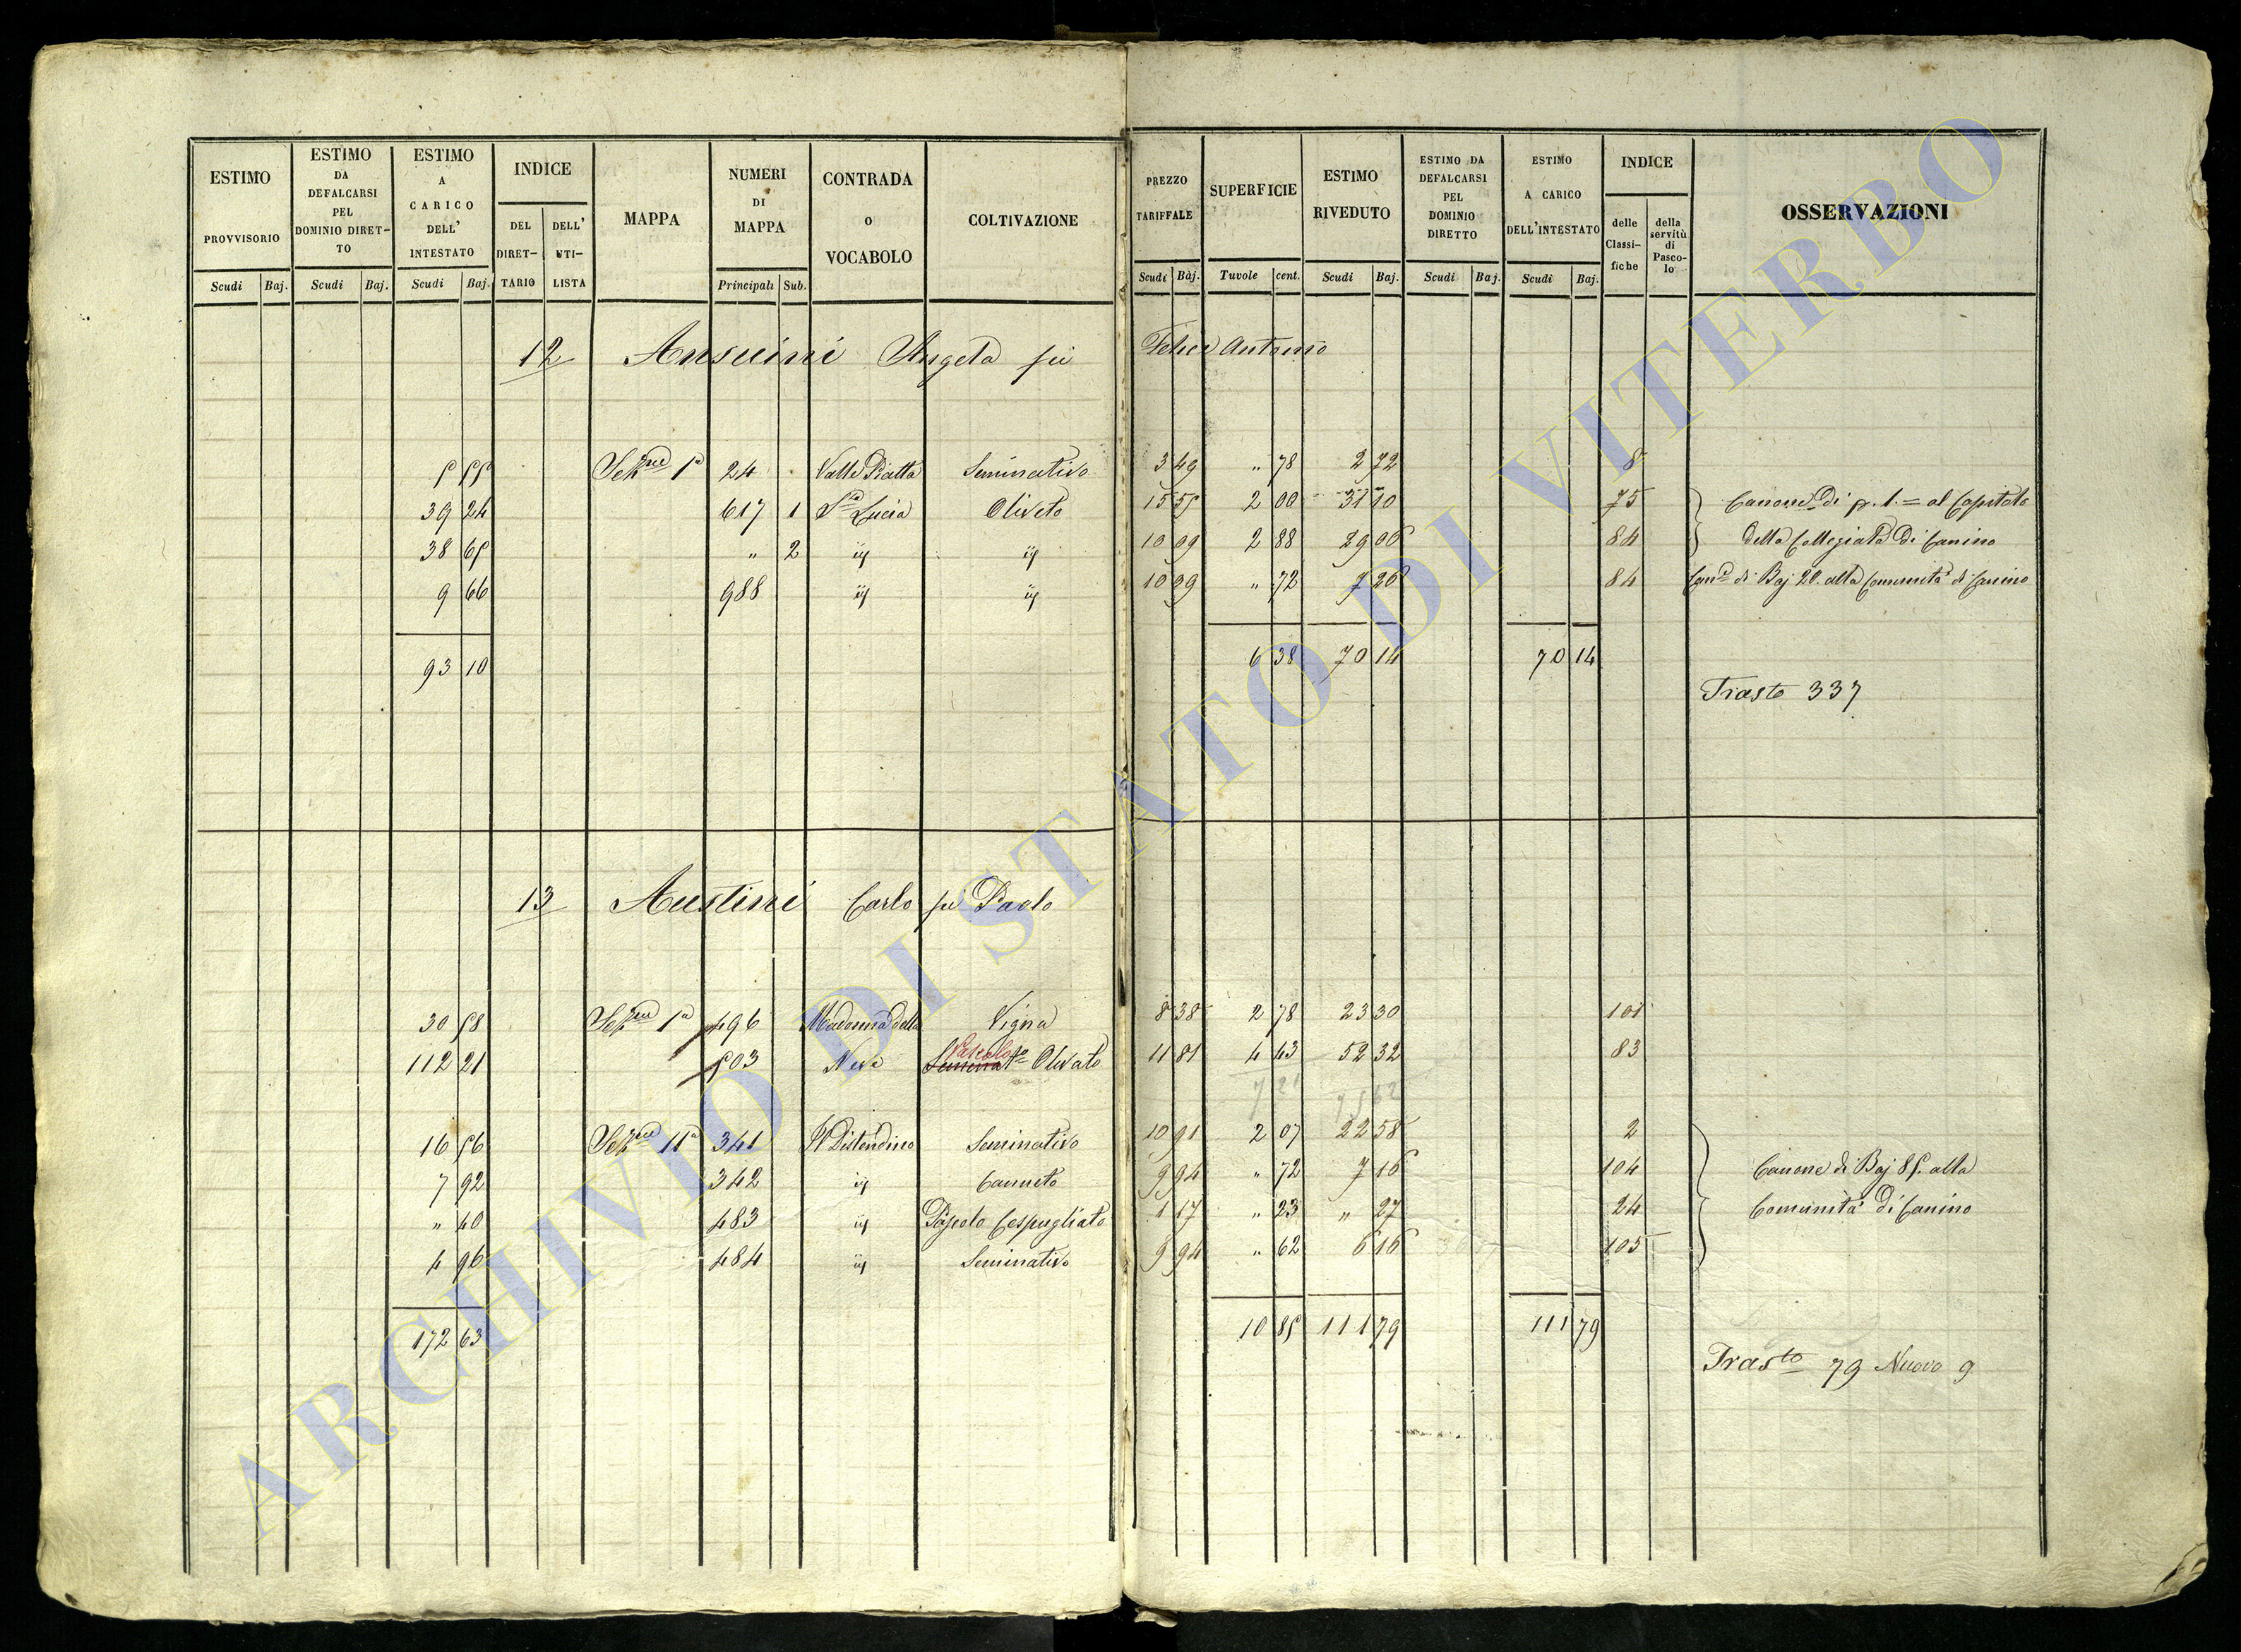 ESTIMO PROVVISORIO Scudi Baj.
ESTIMO DA DEFALCARSI PEL DOMINIO DIRET-TO Scudi Baj.
ESTIMO A CARICO DELL' INTESTATO Scudi Baj.
INDICE DEL DIRET-TARIO DELL' UTI-LISTA
MAPPA
NUMERI DI MAPPA Principali Sub.
CONTRADA o VOCABOLO
COLTIVAZIONE
PREZZO TARIFFALE Scudi Baj.
SUPERFICIE Tavole cent.
ESTIMO RIVEDUTO Scudi Baj.
ESTIMO DA DEFALCARSI PEL DOMINIO DIRETTO Scudi Baj.
ESTIMO A CARICO DELL'INTESTATO Scudi Baj.
INDICE delle Classi-fiche della servitù di Pasco-lo
OSSERVAZIONI
12 Ansuini Angela fu Felice Antonio
5 55 Sezne 1a 24 Valle Piatta Seminativo 3 49 " 78 2 72 8
39 24 617 1 Sta Lucia Oliveto 15 55 2 00 31 10 75 Canone di p. 1. = al Capitolo
38 65 " 2 ii ii 10 09 2 88 29 06 84 della Collegiata di Canino
9 66 988 ii ii 10 09 " 72 7 26 84 Cane di Baj 20. alla Comunità di Canino
93 10 6 38 70 14 70 14
Trasto 337
13 Austini Carlo fu Paolo
30 58 Sezne 1a 496 Madonna della Vigna 8 38 2 78 23 30 101
112 21 503 Neve Seminato Pascolo Olivato 11 81 4 43 52 32 83
7 21 75 62
16 56 Sezne 11a 341 Il Distendino Seminativo 10 91 2 07 22 58 2
7 92 342 ii Canneto 9 94 " 72 7 16 104 Canone di Baj 85. alla
" 40 483 ii Pascolo Cespugliato 1 17 " 23 " 27 24 Comunità di Canino
4 96 484 ii Seminativo 9 94 " 62 6 16 105
172 63 10 85 111 79 111 79
Trasto 79 Nuovo 9
ARCHIVIO DI STATO DI VITERBO